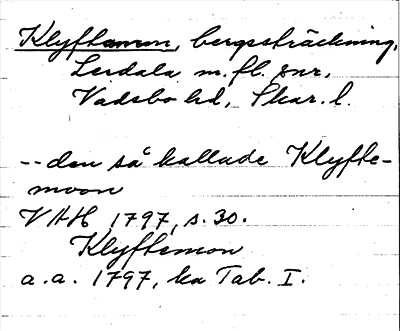 Klyftamon, bergssträckning,
Lerdala m.fl. snr,
Vadsbo hd, Skar. l.
-- den så kallade Klyfte-
moon
VAH 1797, s. 30.
Klyftemon
a.a. 1797, ka Tab. I.